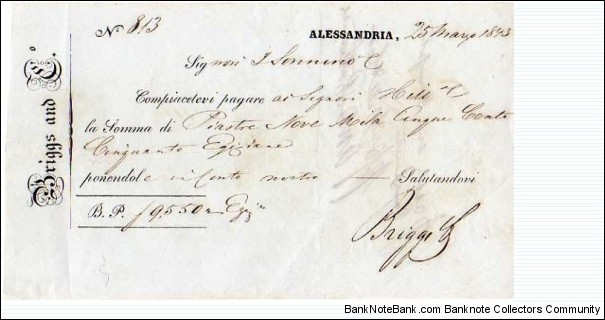 Nº 813
ALESSANDRIA, 25 Marzo 1843
Signori I Sonnino C
Compiacetevi pagare ai Signori Hill C
la Somma di Piastre Nove Mila Cinque Cento
Cinquanta Egiziane
ponendole in Conto nostro — Salutandovi
B. P. 9,550 Egz.ne
Briggs C
Briggs and Cº.
BankNoteBank.com - Banknote Collectors Community